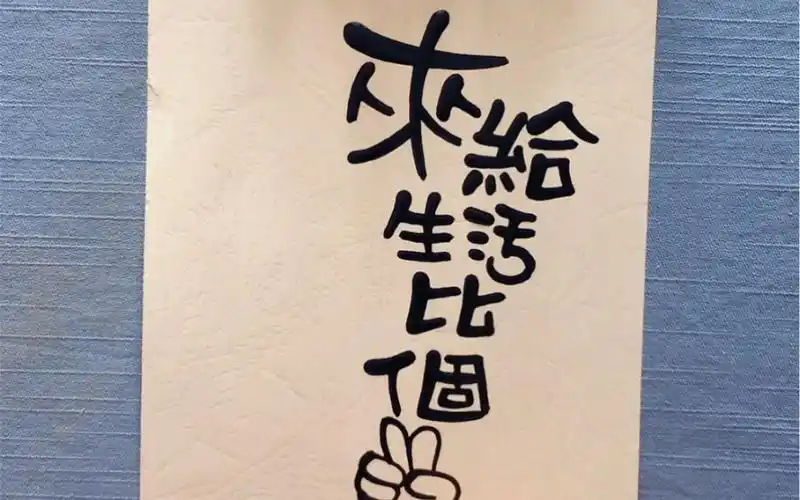 來給
生活
比
個